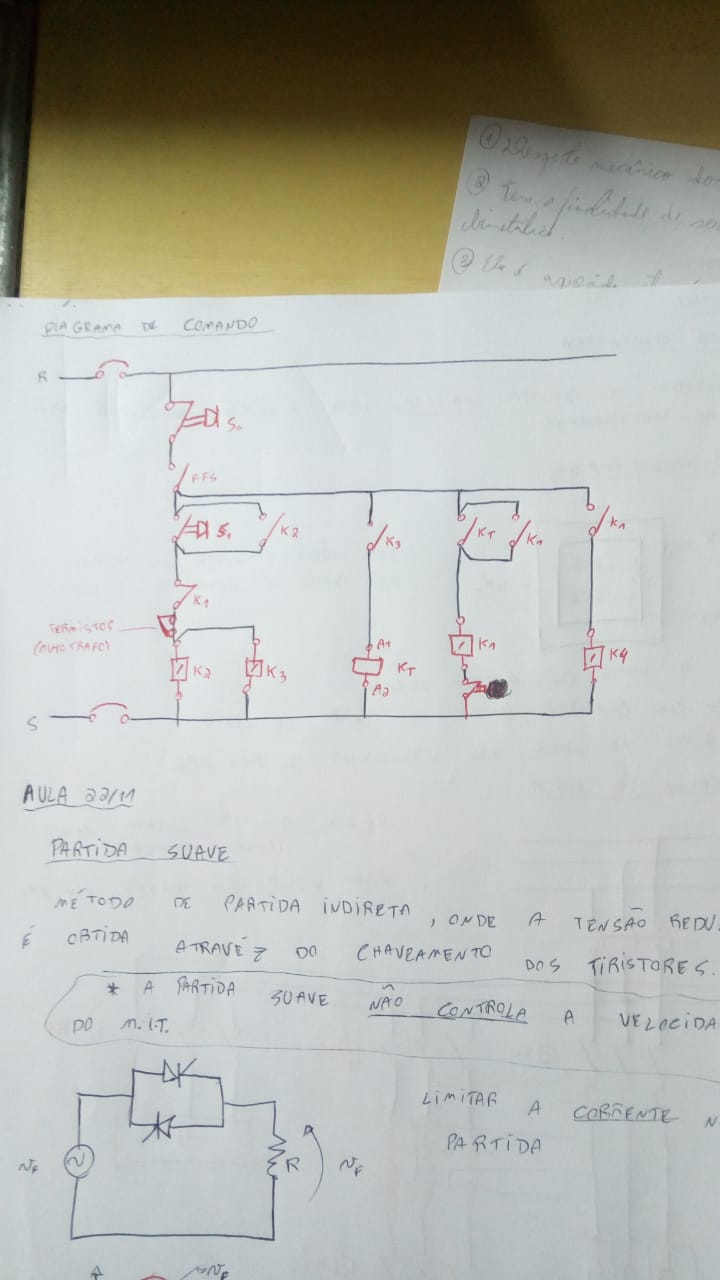 mecânico
② Tem a finalidade de
bimetálico.
③
DIAGRAMA DE COMANDO
R
S0
FFS
S1
K2
K3
KT
K1
K1
K1
TERMISTOR
(AUTO TRAFO)
K2
K3
A1
KT
A2
K1
K4
S
AULA 22/11
PARTIDA SUAVE
MÉTODO DE PARTIDA INDIRETA, ONDE A TENSÃO REDU
É OBTIDA ATRAVÉZ DO CHAVEAMENTO DOS TIRISTORES.
* A PARTIDA SUAVE NÃO CONTROLA A VELOCIDA
DO M.I.T.
LIMITAR A CORRENTE N
PARTIDA
R